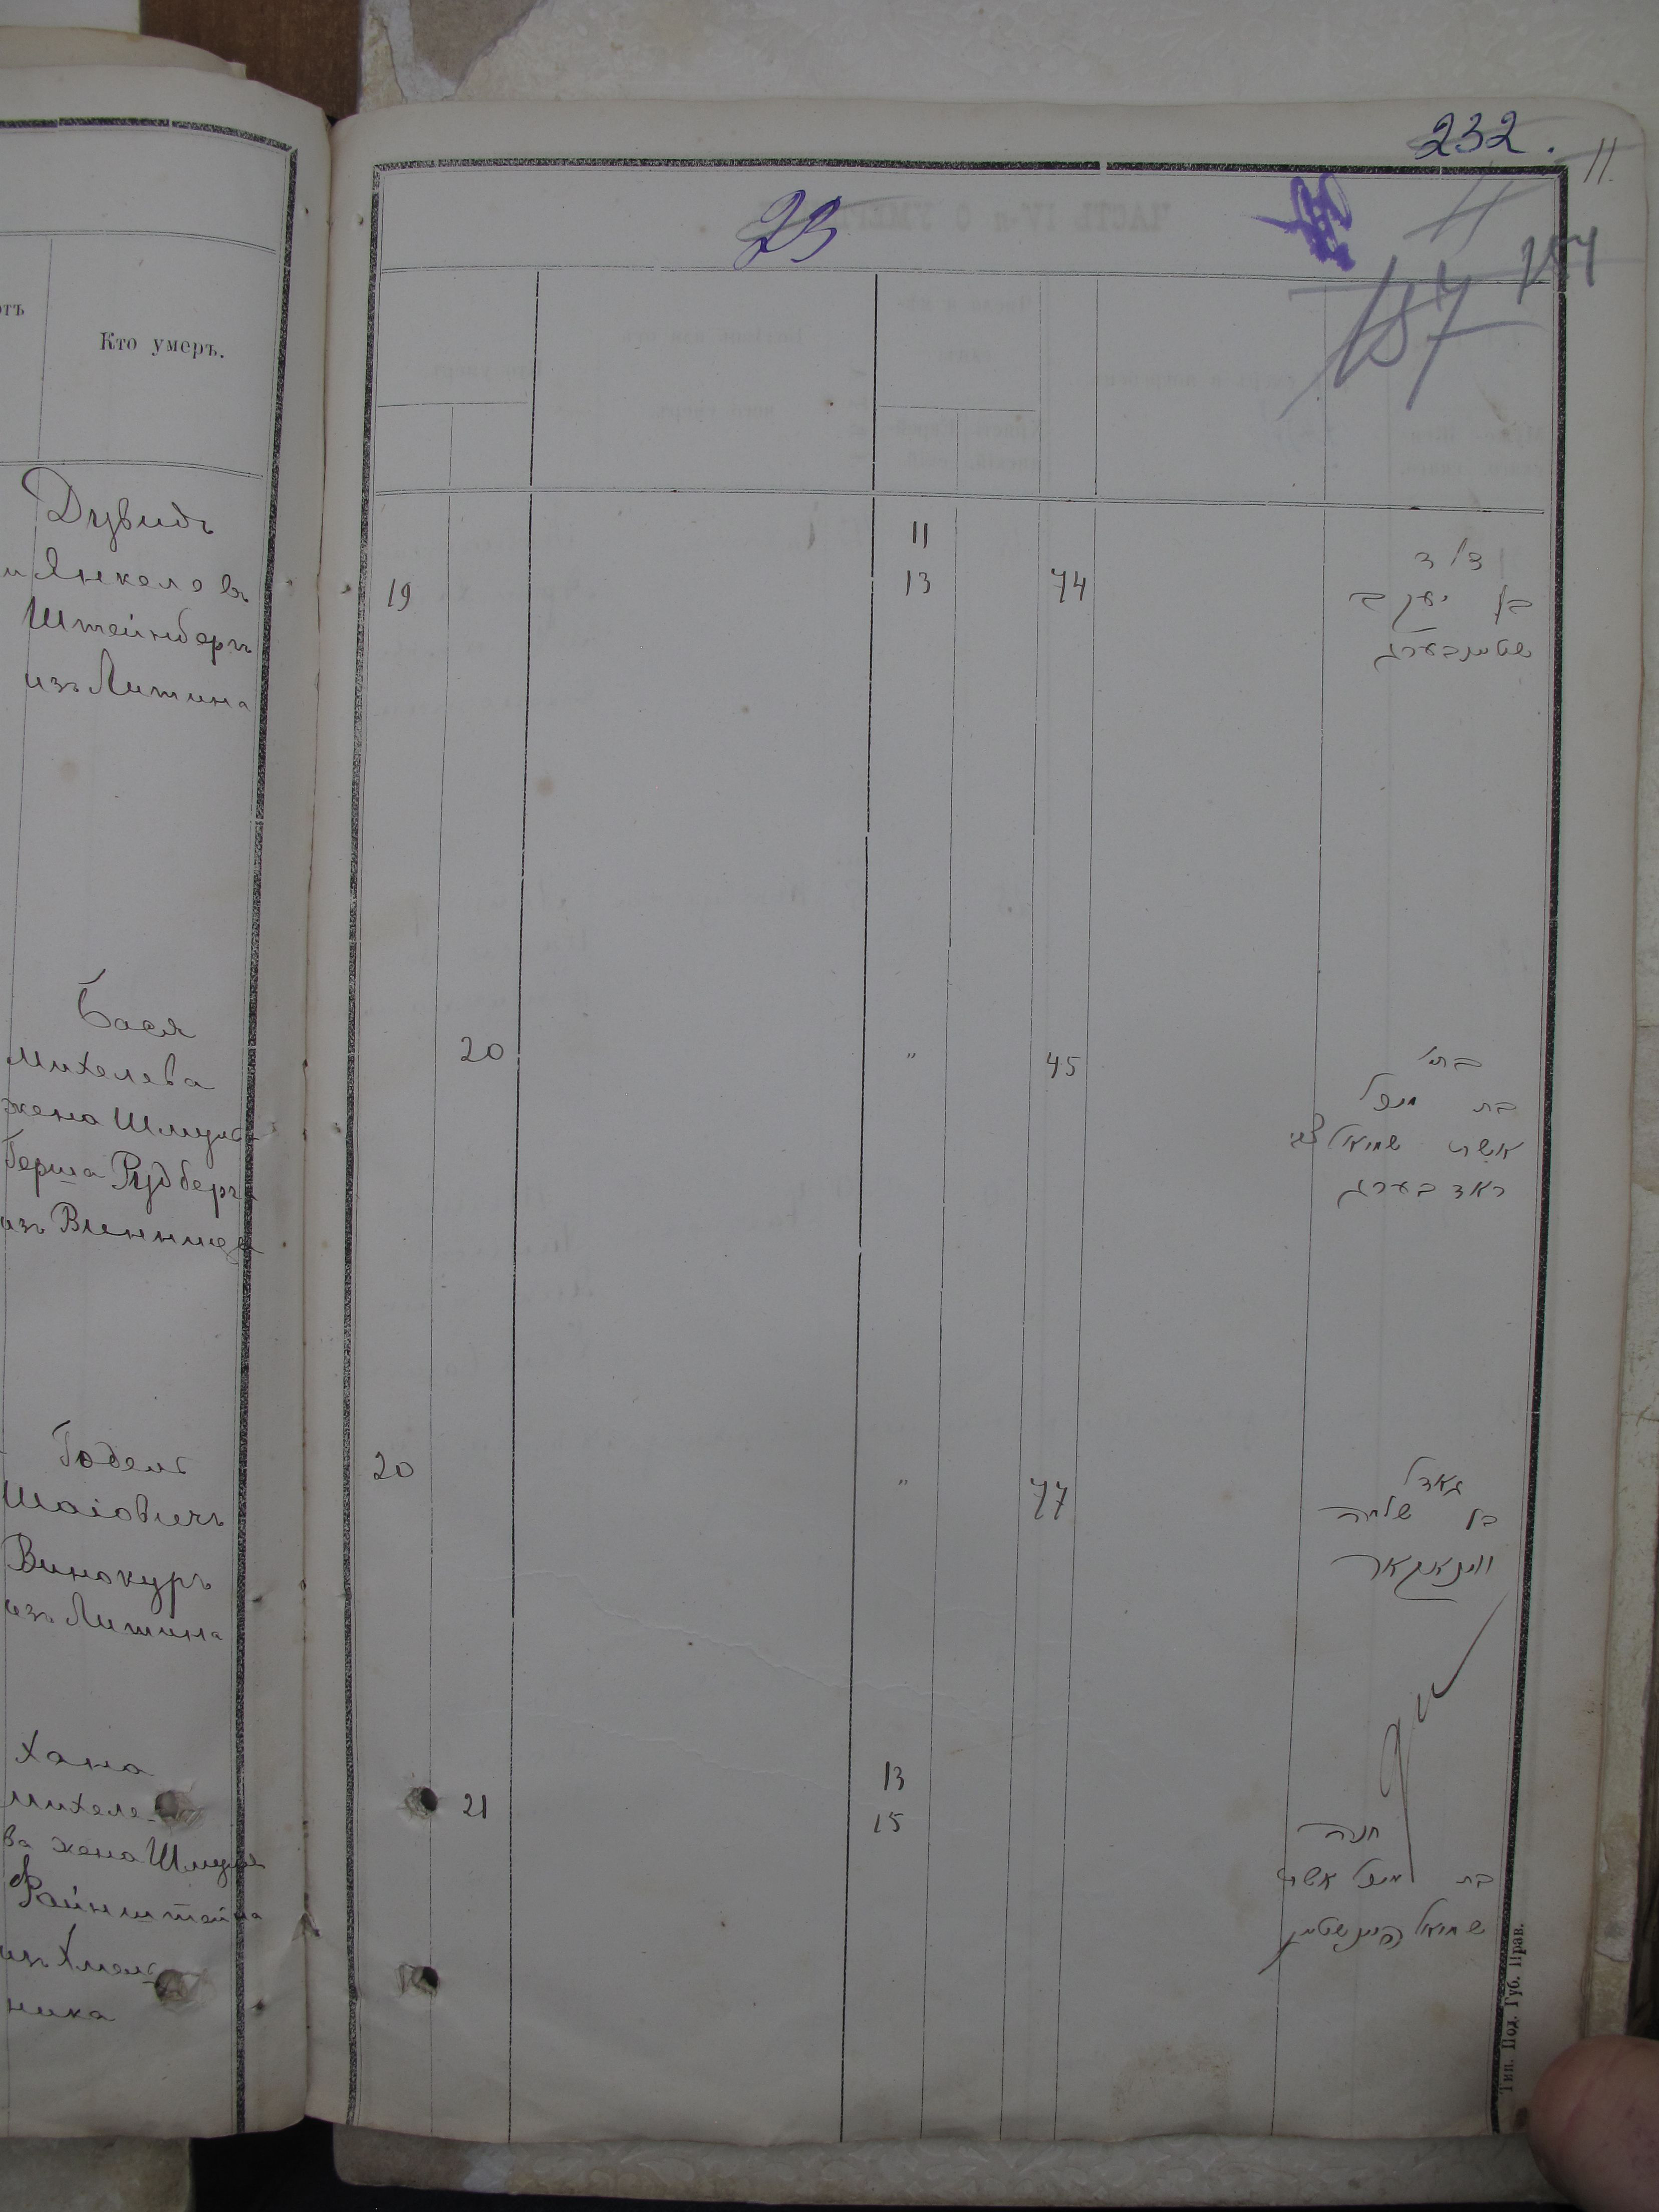 Кто умеръ.
Дувидъ
Янкелевъ
Штейнбергъ
изъ Литина
Бася
Михелева
жена Шмуля
Герша Рудбергъ
изъ Винницы
Годель
Шаіовичъ
Винокуръ
изъ Литина
Хана
Михеле-
ва жена Шмуля
Файнштейна
изъ Хмель
ника
232.
11
23
187
11
13
19
74
דוד
בן יעקב
שטיינבערג
20
"
45
בתי'
בת מיכל
אשת שמואל צבי
ראדבערג
20
"
77
גאדל
בן שלמה
ווינאגאר
13
15
21
חנה
בת מיכל אשת
שמואל פיינשטיין
Тип. Под. Губ. Прав.